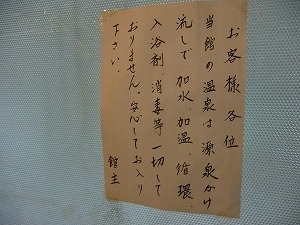 お客様各位
当館の温泉は源泉かけ
流しで、加水、加温、循環、
入浴剤、消毒等一切して
おりません。安心してお入り
下さい。
館主